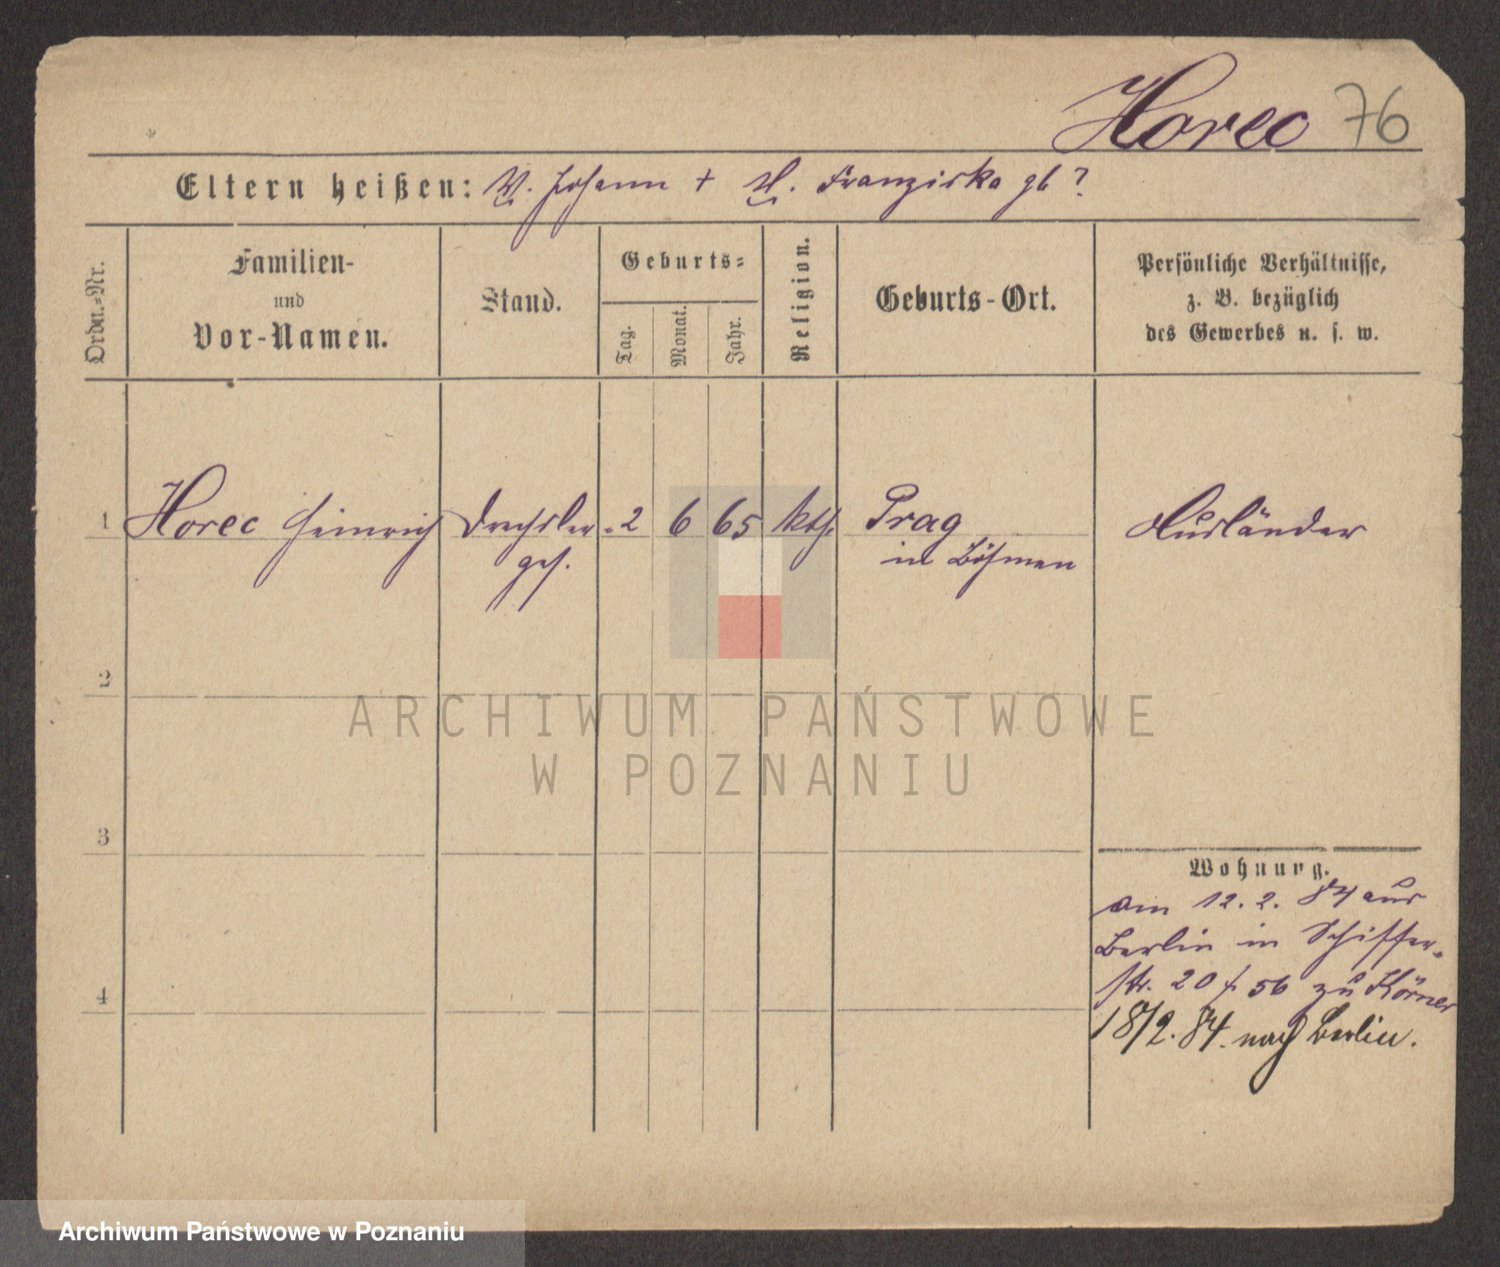 Horec 76
Eltern heißen: V. Johann + M. Franziska gb ?
Ordn.=Nr.
Familien-
und
Vor-Namen.
Stand.
Geburts=
Tag.
Monat.
Jahr.
Religion.
Geburts-Ort.
Persönliche Verhältnisse,
z. B. bezüglich
des Gewerbes u. s. w.
1 Horec Heinrich Drechsler= 2 6 65 kth. Prag Ausländer
ges. in Böhmen
2
3
4
Wohnung.
Am 12. 2. 84 aus
Berlin in Schiffer-
str. 20 f 56 zu Körner
18/2. 84. nach Berlin.
ARCHIWUM PAŃSTWOWE
W POZNANIU
Archiwum Państwowe w Poznaniu